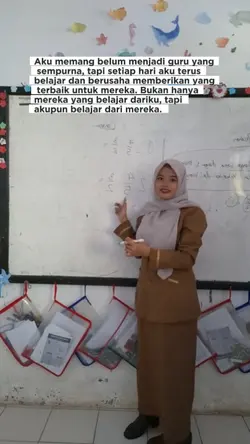 Aku memang belum menjadi guru yang
sempurna, tapi setiap hari aku terus
belajar dan berusaha memberikan yang
terbaik untuk mereka. Bukan hanya
mereka yang belajar dariku, tapi
akupun belajar dari mereka.